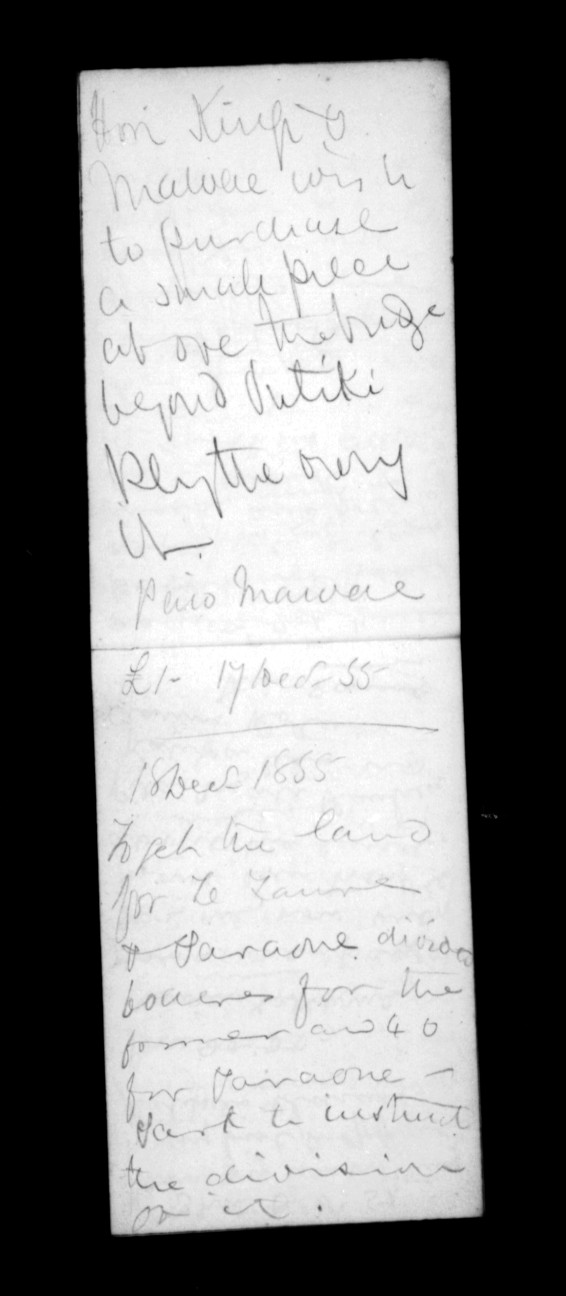 Hori Kingi &
Mawae wish
to purchase
a small piece
above the bridge
beyond Putiki
Reply the
it.
Paid Mawae
£1- 17 Dec 55
18 Dec 1855
To get the land
for Te
& Paraone divided
60 acres for the
former and 40
for Paraone -
Park to instruct
the division
of it.